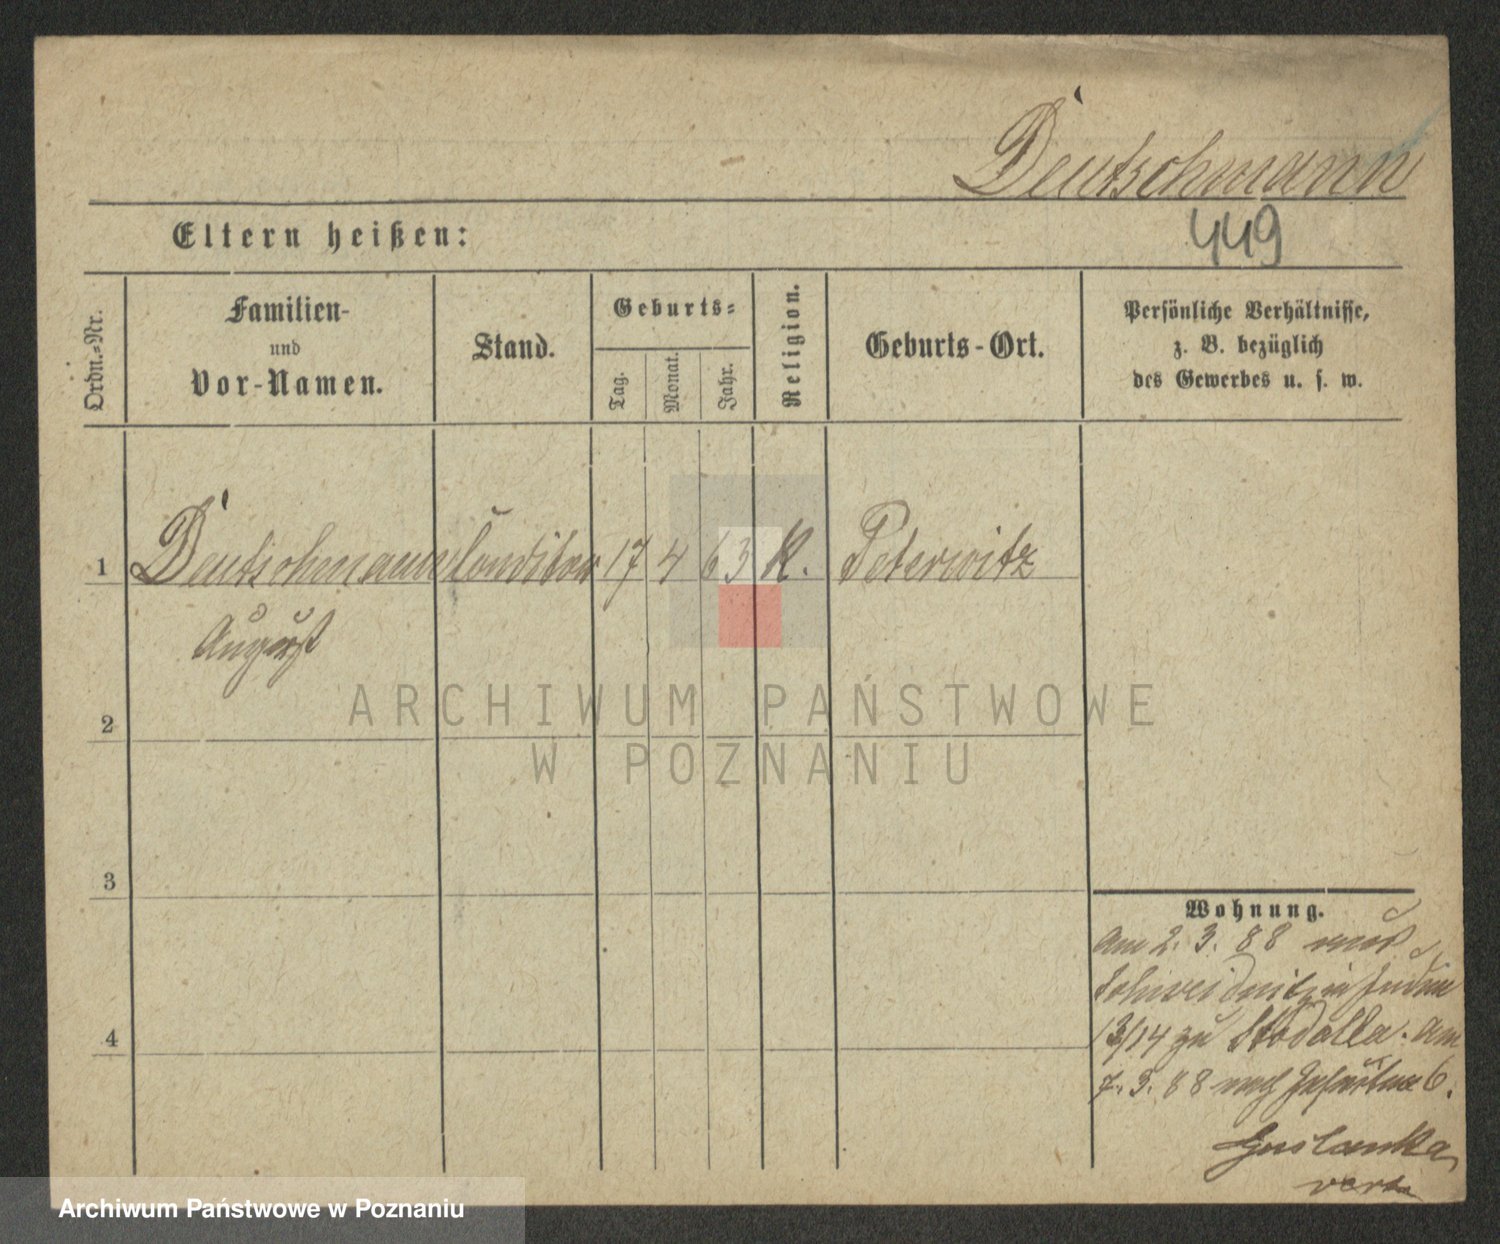 Deutschmann
Eltern heißen:
449
Ordn.-Nr.
Familien-
und
Vor-Namen.
Stand.
Geburts-
Tag.
Monat.
Jahr.
Religion.
Geburts-Ort.
Persönliche Verhältnisse,
z. B. bezüglich
des Gewerbes u. s. w.
1 Deutschmann Conditor 17 4 63 K. Peterwitz
August
2
3
4
Wohnung.
am 2. 3. 88 aus
Schweidnitz in
13/14 zu Stodolla. am
7. 3. 88 nach 6.
ARCHIWUM PAŃSTWOWE
W POZNANIU
Archiwum Państwowe w Poznaniu